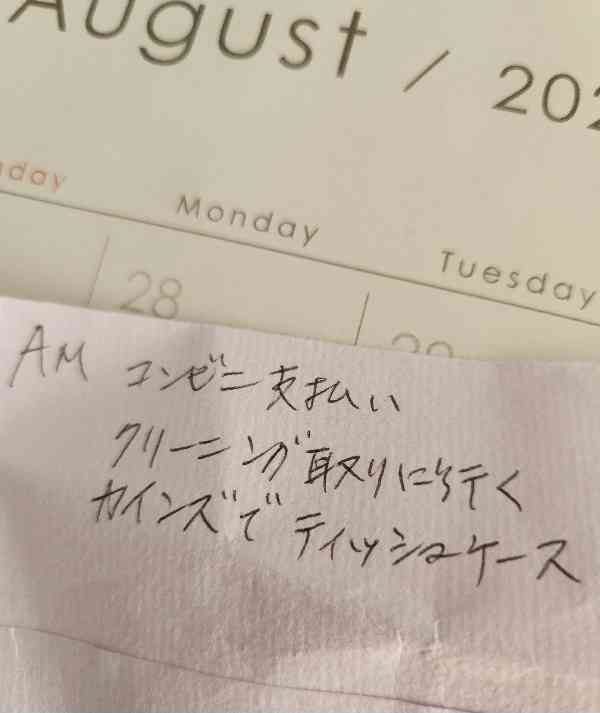 August / 202
day
Monday
Tuesday
28
29
AM コンビニ支払い
クリーニング取りに行く
カインズでティッシュケース